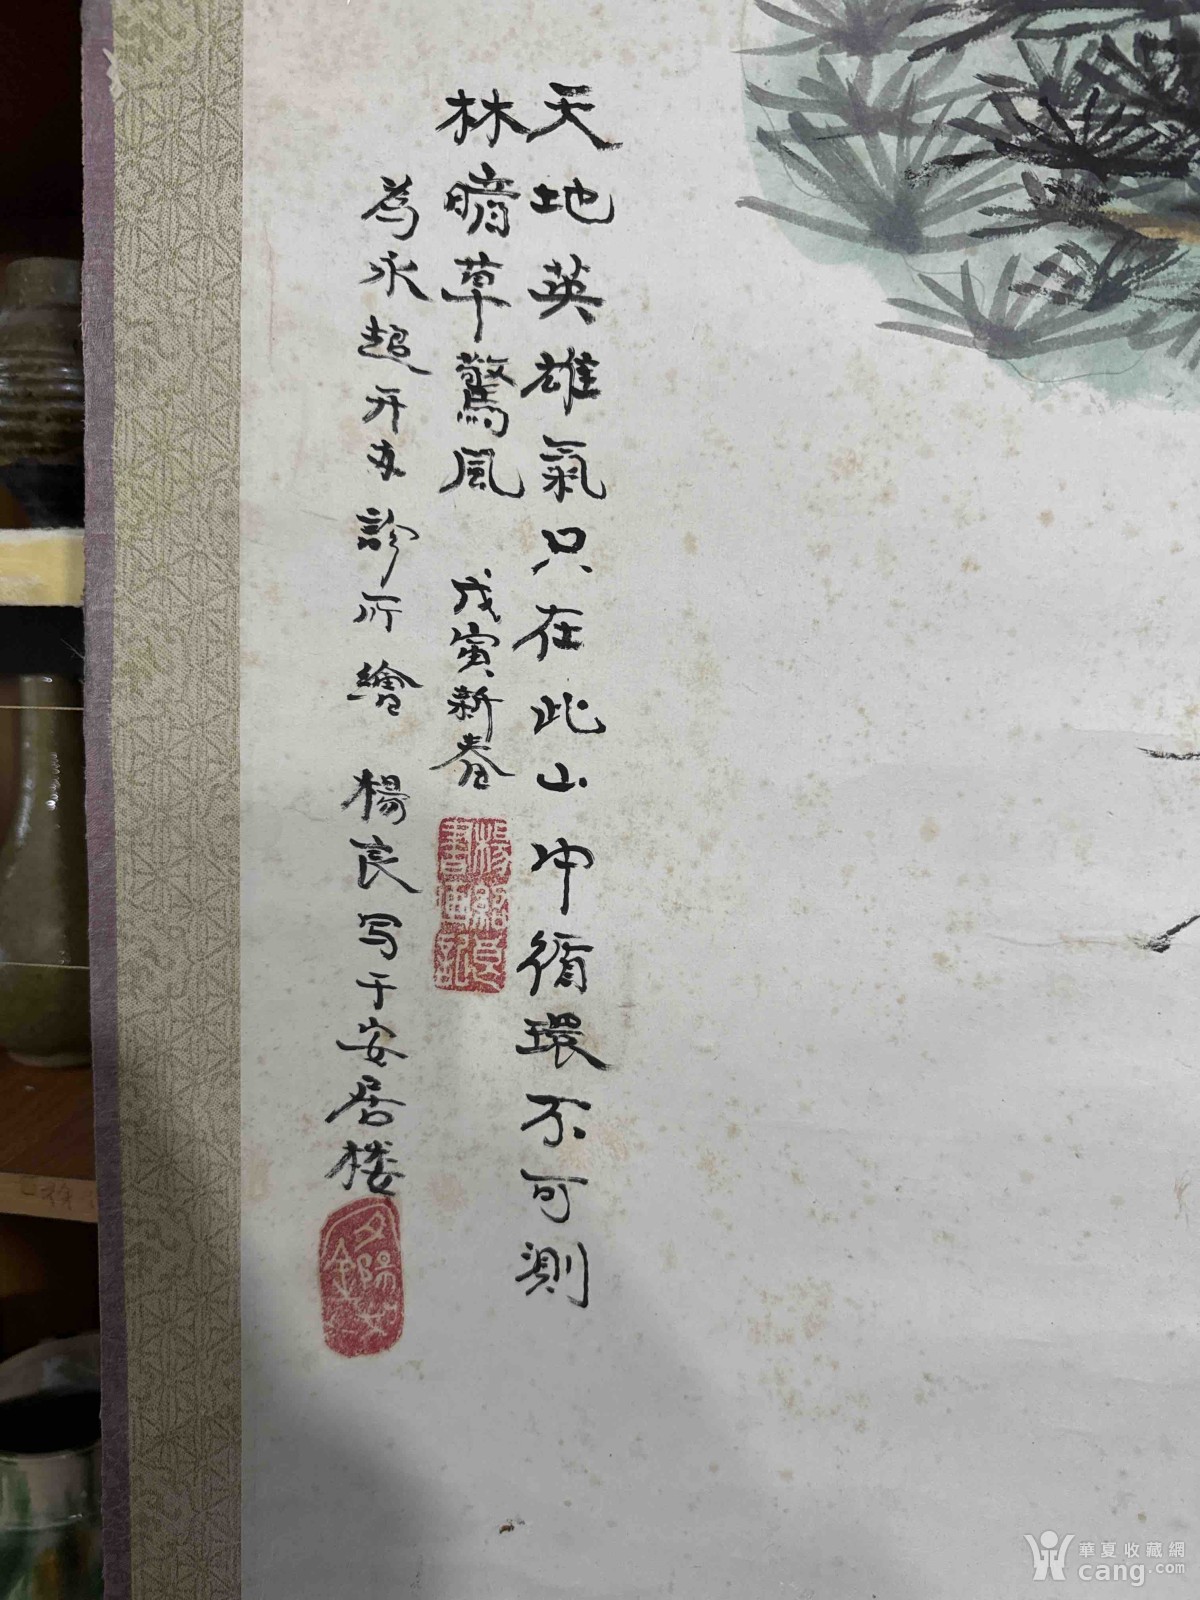 天地英雄氣只在此山中循環不可測
林暗草驚風 戊寅新春
楊
書畫
為永超开办診所繪 楊良写于安居楼
夕陽
華夏收藏網
cang.com